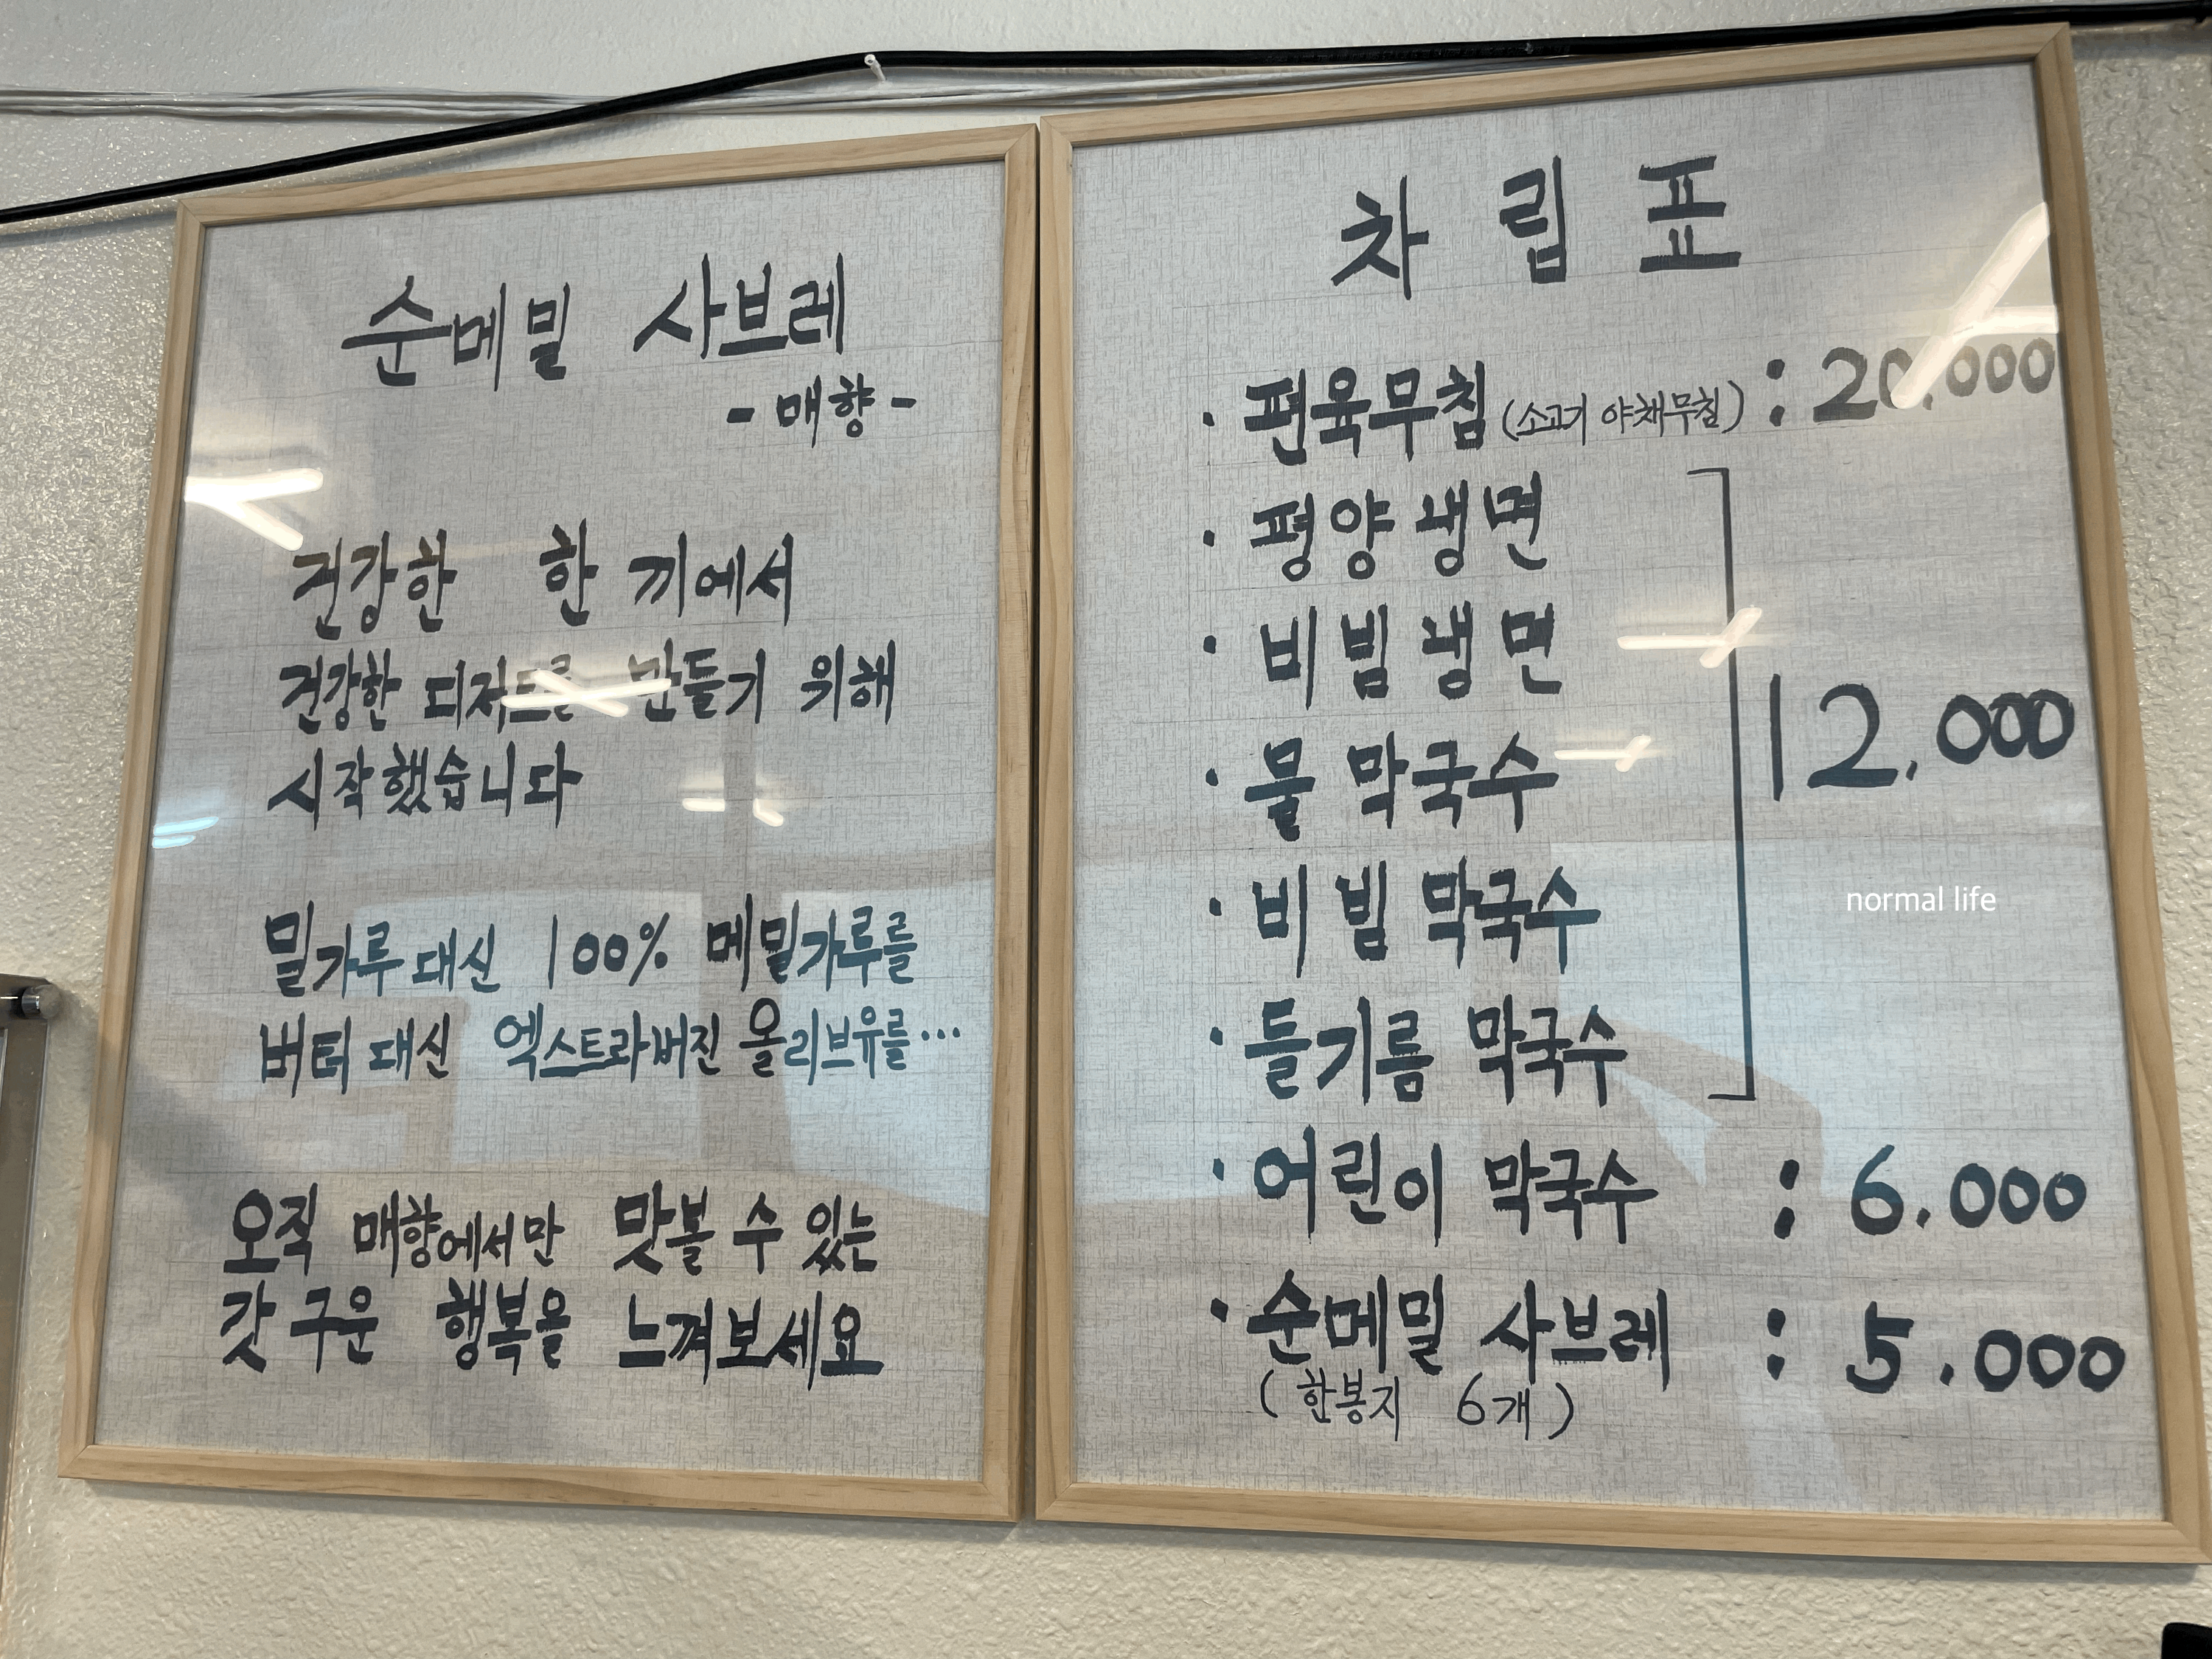 순메밀 사브레
- 매향 -
건강한 한 끼에서
건강한 디저트를 만들기 위해
시작했습니다
밀가루 대신 100% 메밀가루를
버터 대신 엑스트라버진 올리브유를...
오직 매향에서만 맛볼 수 있는
갓 구운 행복을 느껴보세요
차림표
· 편육무침 (소고기 야채무침) : 20,000
· 평양냉면
· 비빔냉면
· 물 막국수
12,000
· 비빔 막국수
· 들기름 막국수
· 어린이 막국수 : 6.000
· 순메밀 사브레 : 5.000
( 한봉지 6개 )
normal life